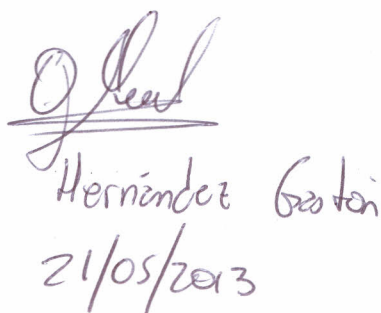 Hernández Gastón
21/05/2013